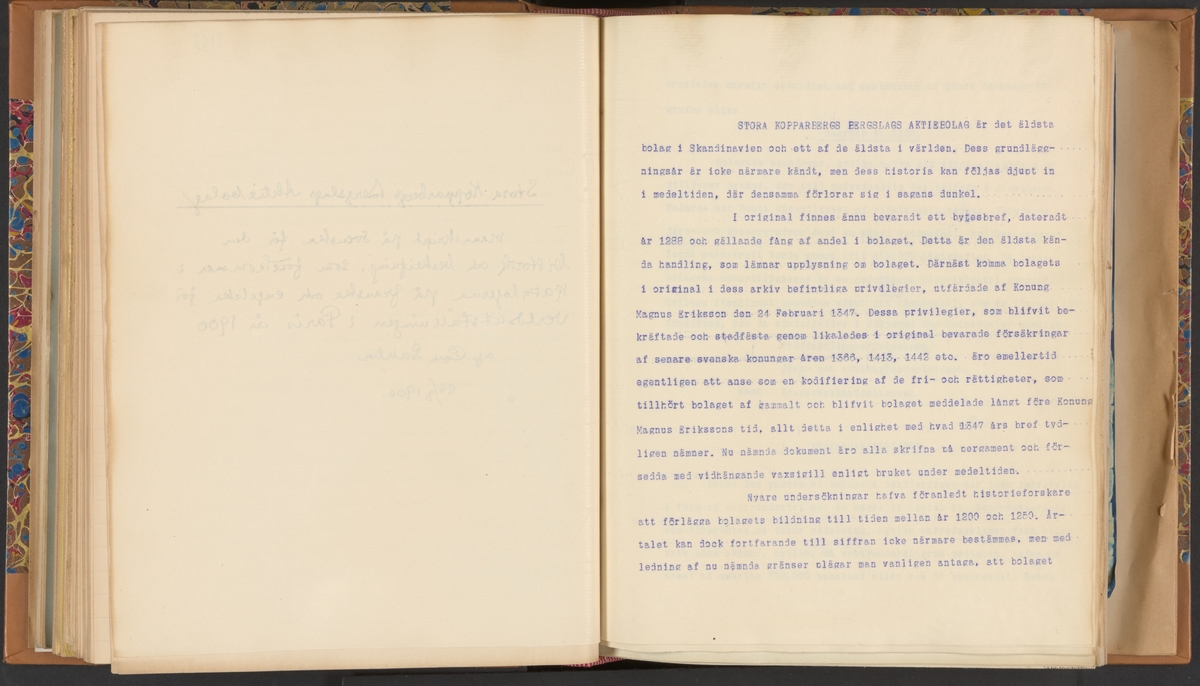 STORA KOPPARBERGS BERGSLAGS AKTIEBOLAG är det äldsta
bolag i Skandinavien och ett af de äldsta i världen. Dess grundlägg-
ningsår är icke närmare kändt, men dess historia kan följas djupt in
i medeltiden, där densamma förlorar sig i sagans dunkel.
I original finnes ännu bevaradt ett bytesbref, dateradt
år 1288 och gällande fång af andel i bolaget. Detta är den äldsta kän-
da handling, som lämnar upplysning om bolaget. Därnäst komma bolagets
i original i dess arkiv befintliga privilegier, utfärdade af Konung
Magnus Eriksson den 24 Februari 1347. Dessa privilegier, som blifvit be-
kräftade och stadfästa genom likaledes i original bevarade försäkringar
af senare svenska konungar åren 1366, 1413, 1442 etc. äro emellertid
egentligen att anse som en kodifiering af de fri- och rättigheter, som
tillhört bolaget af gammalt och blifvit bolaget meddelade långt före Konung
Magnus Erikssons tid, allt detta i enlighet med hvad 1347 års bref tyd-
ligen nämner. Nu nämnda dokument äro alla skrifna på pergament och för-
sedda med vidhängande vaxsigill enligt bruket under medeltiden.
Nyare undersökningar hafva föranledt historieforskare
att förlägga bolagets bildning till tiden mellan år 1200 och 1250. År-
talet kan dock fortfarande till siffran icke närmare bestämmas, men med
ledning af nu nämnda gränser plägar man vanligen antaga, att bolaget